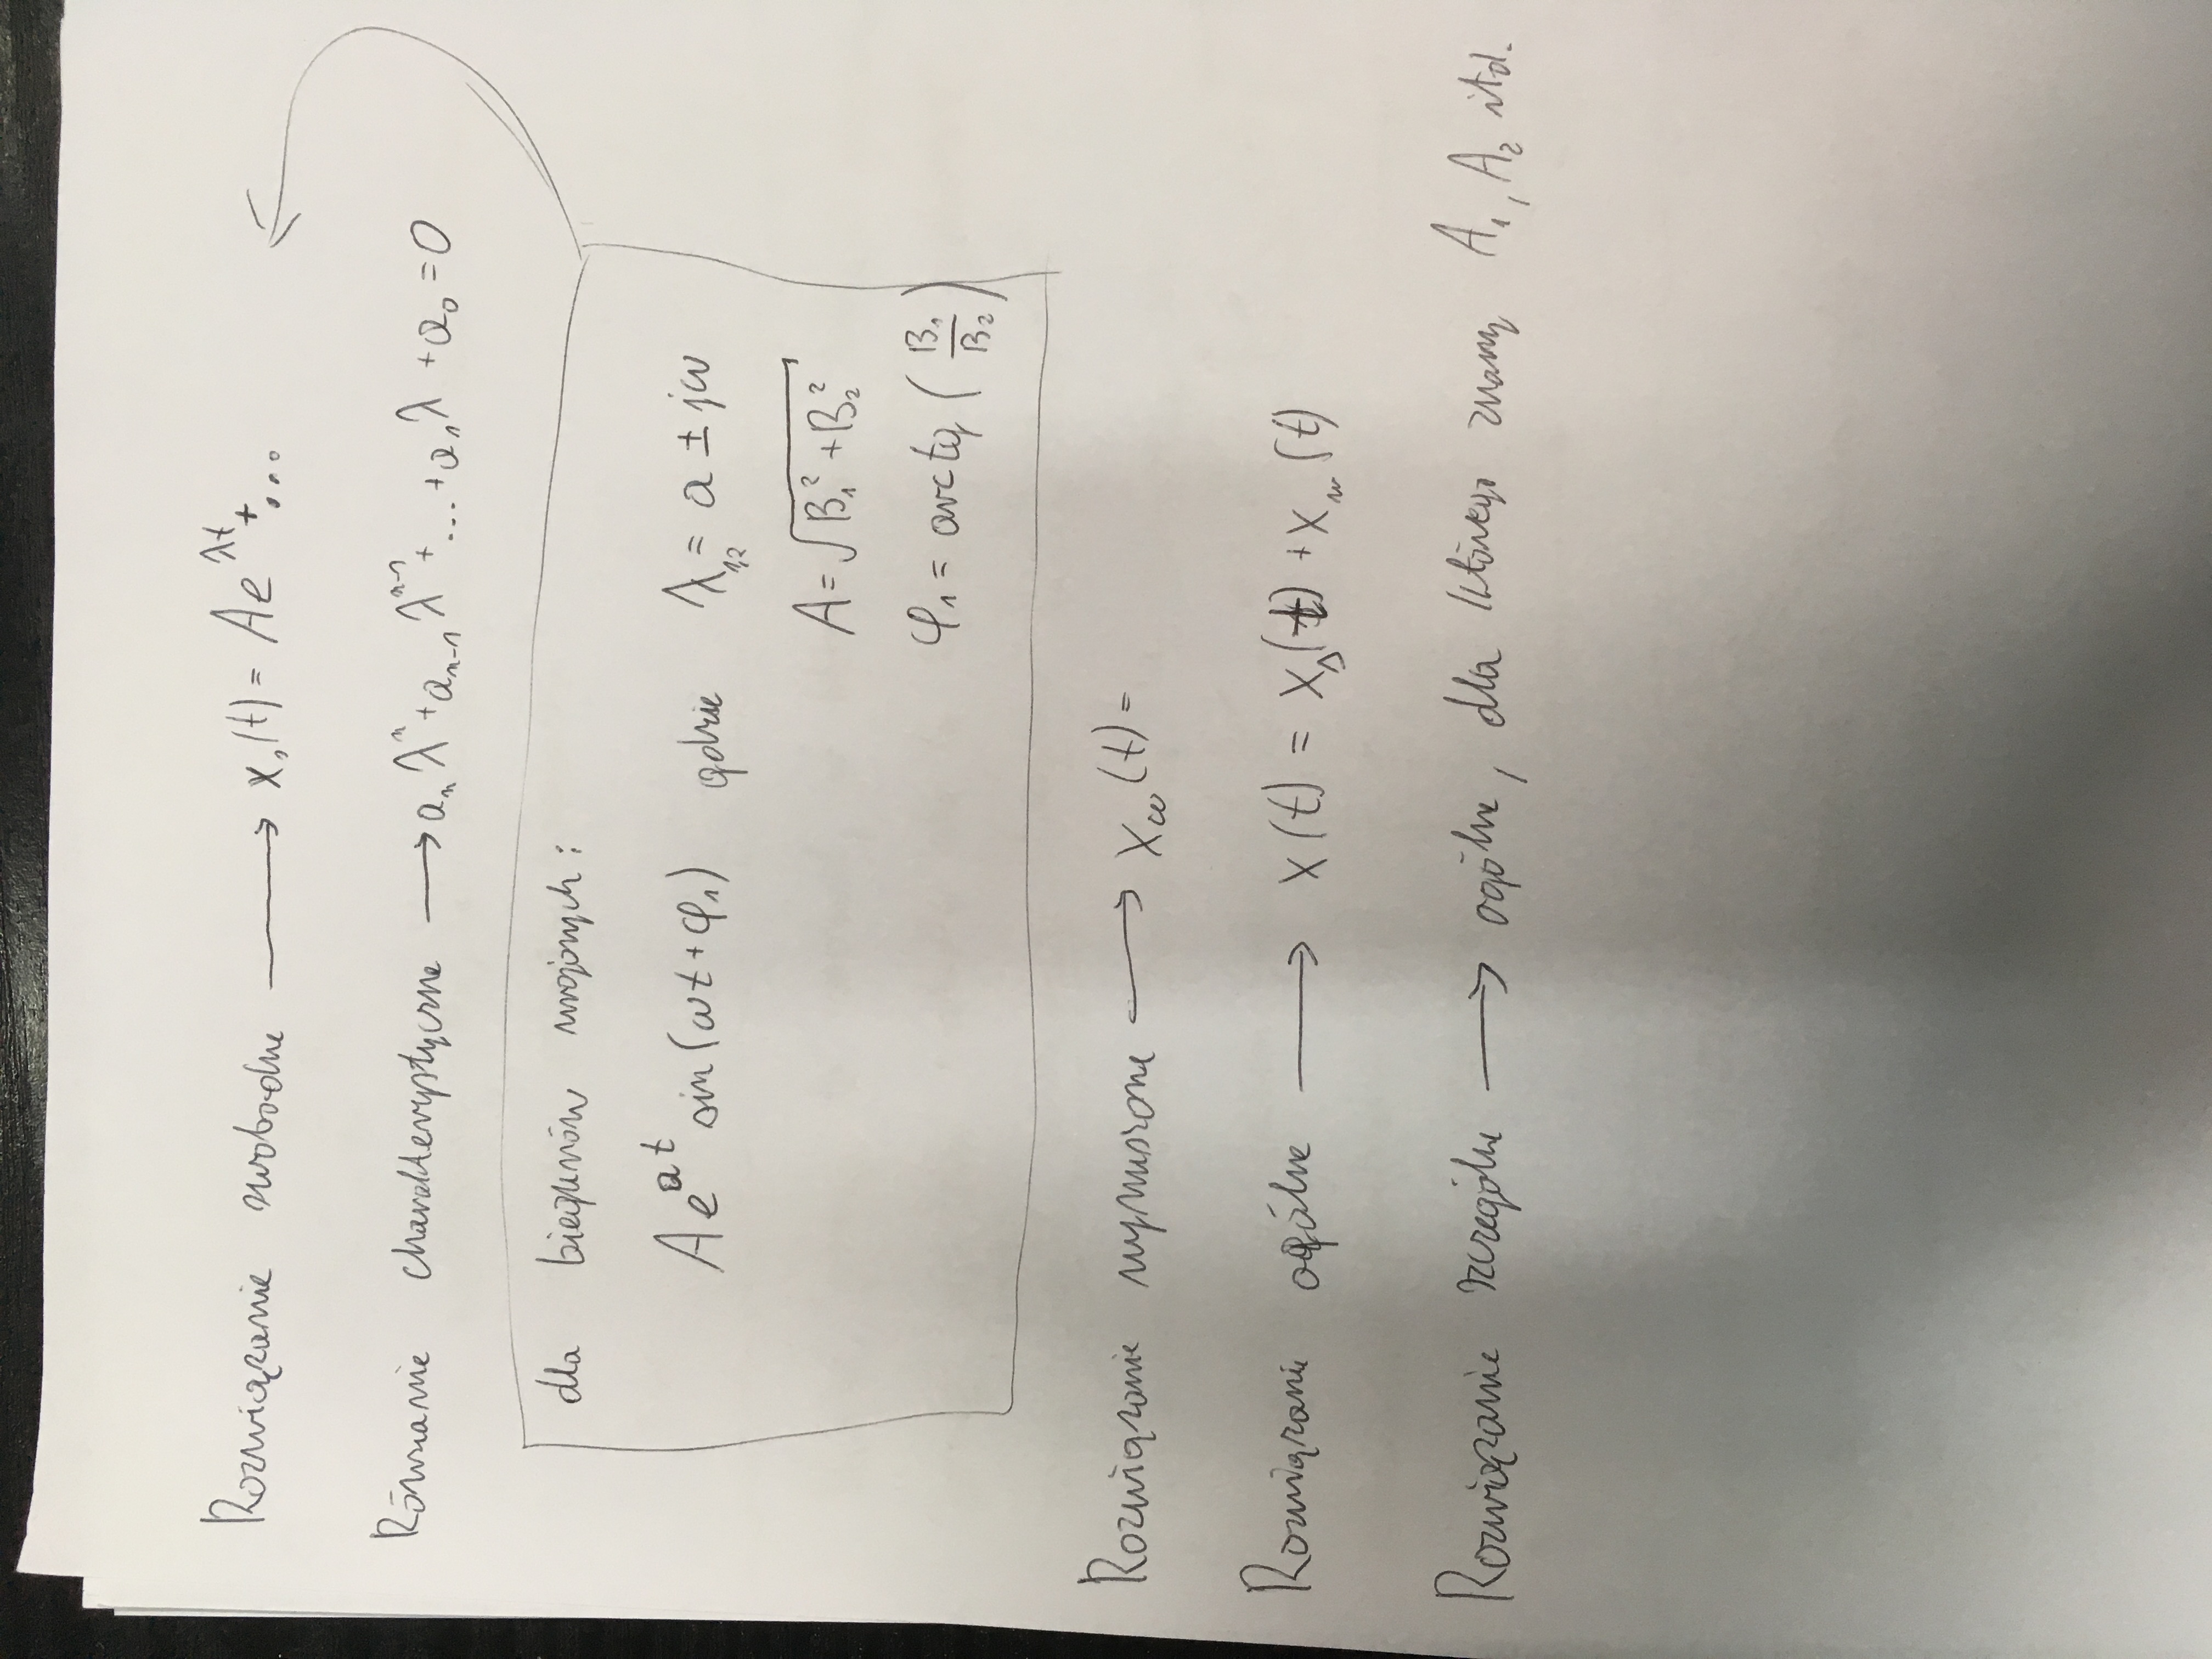 Rozwiązanie swobodne → xₛ(t) = Ae^{λt} + ...
Równanie charakterystyczne → aₙλⁿ + aₙ₋₁λⁿ⁻¹ + ... + a₁λ + a₀ = 0
dla biegunów urojonych :
Ae^{at} sin(ωt + φ₁) gdzie λ₁,₂ = a ± jω
A = √(B₁² + B₂²)
φ₁ = arctg (B₁/B₂)
Rozwiązanie wymuszone → x_w(t) =
Rozwiązanie ogólne → x(t) = xₛ(t) + x_w(t)
Rozwiązanie szczególne → ogólne, dla którego znamy A₁, A₂ itd.